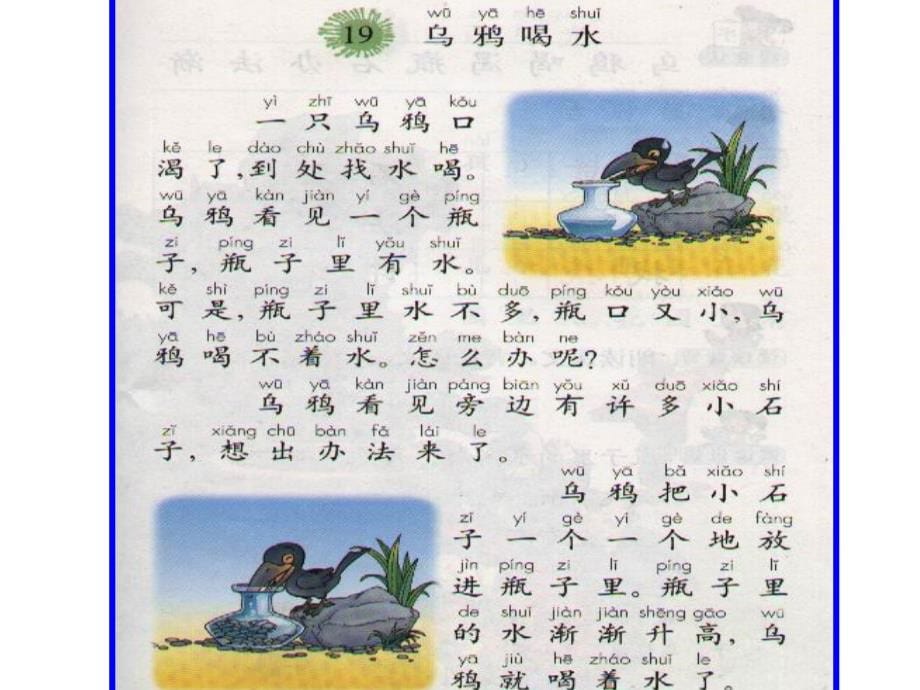 wū yā hē shuǐ
19 乌鸦喝水
yì zhī wū yā kǒu
一只乌鸦口
kě le dào chù zhǎo shuǐ hē
渴了,到处找水喝。
wū yā kàn jiàn yí gè píng
乌鸦看见一个瓶
zi píng zi lǐ yǒu shuǐ
子,瓶子里有水。
kě shì píng zi lǐ shuǐ bù duō píng kǒu yòu xiǎo wū
可是,瓶子里水不多,瓶口又小,乌
yā hē bù zháo shuǐ zěn me bàn ne
鸦喝不着水。怎么办呢?
wū yā kàn jiàn páng biān yǒu xǔ duō xiǎo shí
乌鸦看见旁边有许多小石
zǐ xiǎng chū bàn fǎ lái le
子,想出办法来了。
wū yā bǎ xiǎo shí
乌鸦把小石
zǐ yí gè yí gè de fàng
子一个一个地放
jìn píng zi lǐ píng zi lǐ
进瓶子里。瓶子里
de shuǐ jiàn jiàn shēng gāo wū
的水渐渐升高,乌
yā jiù hē zháo shuǐ le
鸦就喝着水了。